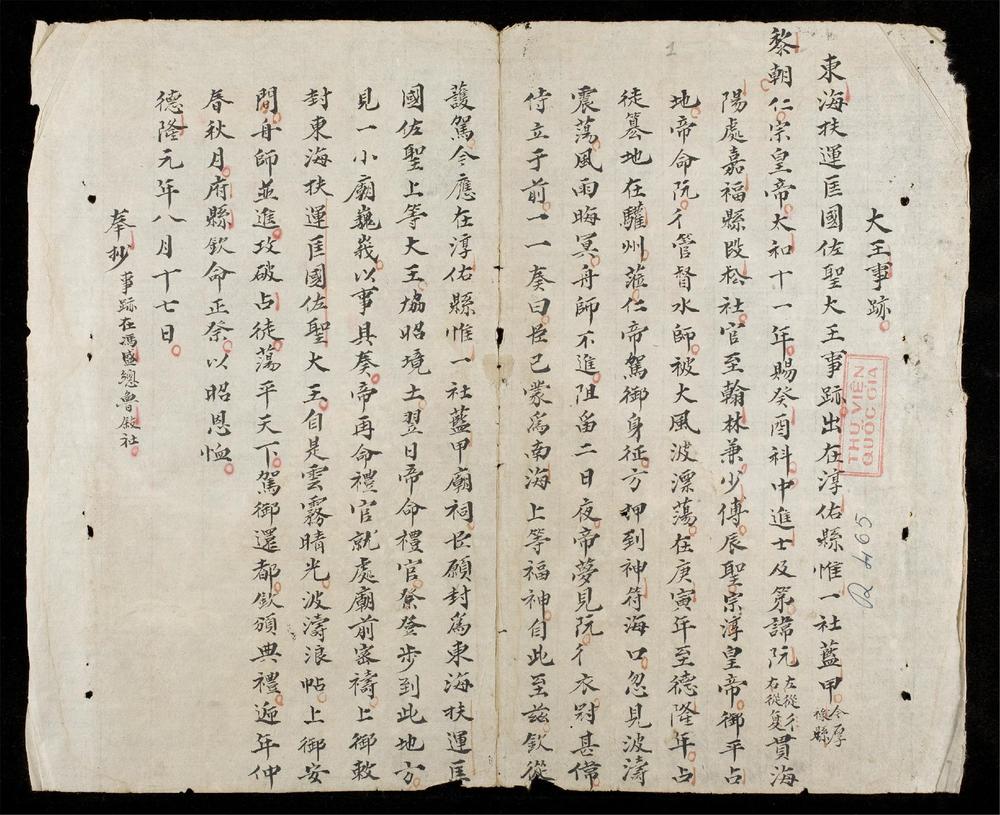 大王事跡
東海扶運匡國佐聖大王事跡出在淳佑縣惟一社藍甲今厚祿縣
黎朝仁宗皇帝太和十一年賜癸酉科中進士及第諱阮左從彳右從复貫海
陽處嘉福縣段松社官至翰林兼少傅辰聖宗淳皇帝御平占
地帝命阮彳管督水師被大風波漂蕩在庚寅年至德隆年占
徒篡地在驩州蓙仁帝駕御身征方押到神符海口忽見波濤
震蕩風雨晦冥舟師不進阻畄二日夜帝夢見阮彳衣冠甚偉
侍立于前一一奏曰臣已蒙為南海上等福神自此至茲欽從
護駕今應在淳佑縣惟一社藍甲廟祠臣願封為東海扶運匡
國佐聖上等大王協昭境土翌日帝命禮官發登步到此地方
見一小廟巍峩以事具奏帝再命禮官就處廟前密禱上御敕
封東海扶運匡國佐聖大王自是雲霧晴光波濤浪帖上御安
間舟師並進攻破占徒蕩平天下駕御還都欽頒典禮遞年仲
春秋月府縣欽命正祭以昭恩恤
德隆元年八月十七日
奉抄事跡在馮盛總魯敍社
THƯ VIỆN
QUỐC GIA
1